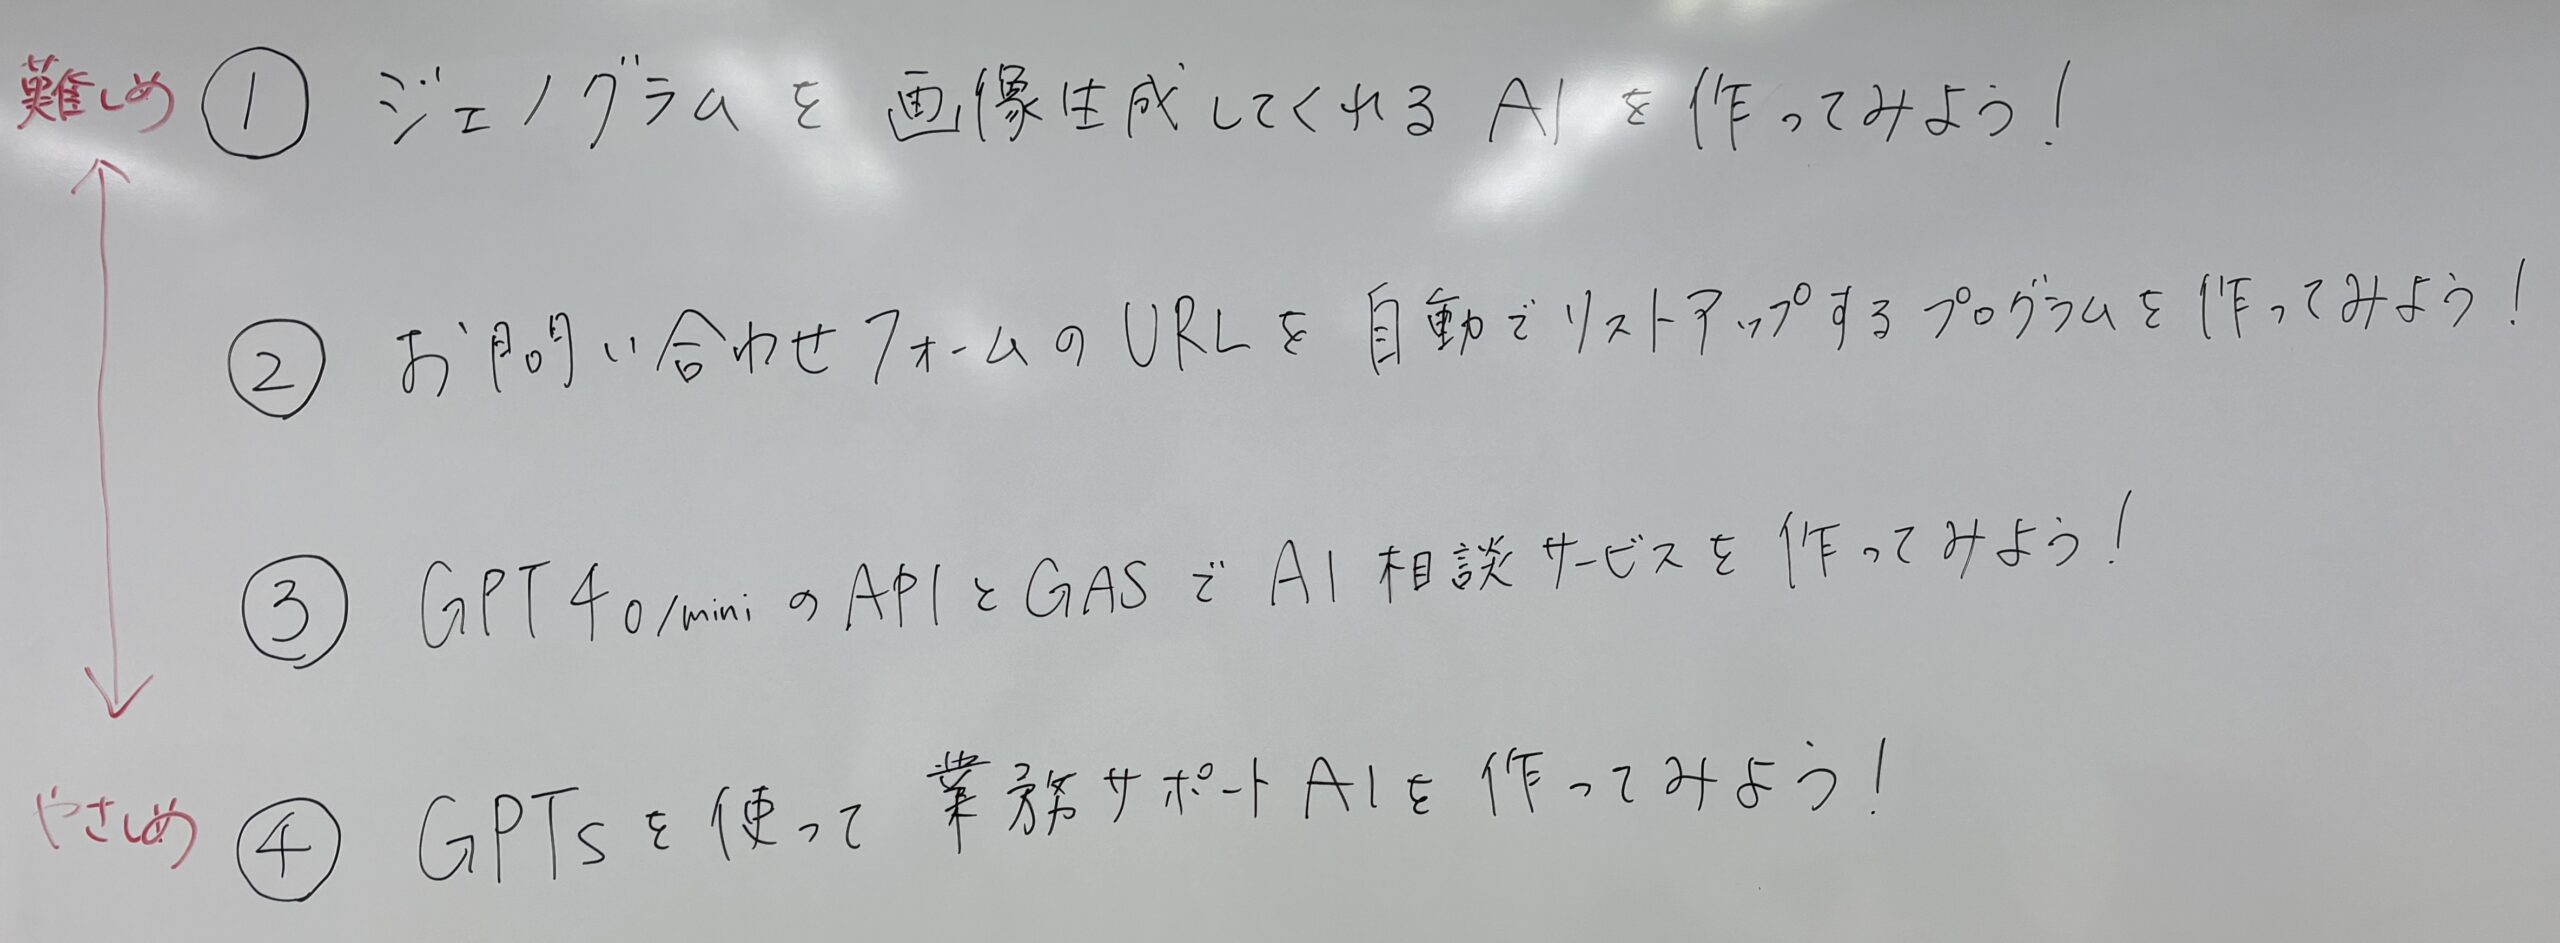 難しめ ① ジェノグラムを画像生成してくれるAIを作ってみよう!
② お問い合わせフォームのURLを自動でリストアップするプログラムを作ってみよう!
③ GPT4o/miniのAPIとGASでAI相談サービスを作ってみよう!
やさしめ ④ GPTsを使って業務サポートAIを作ってみよう!